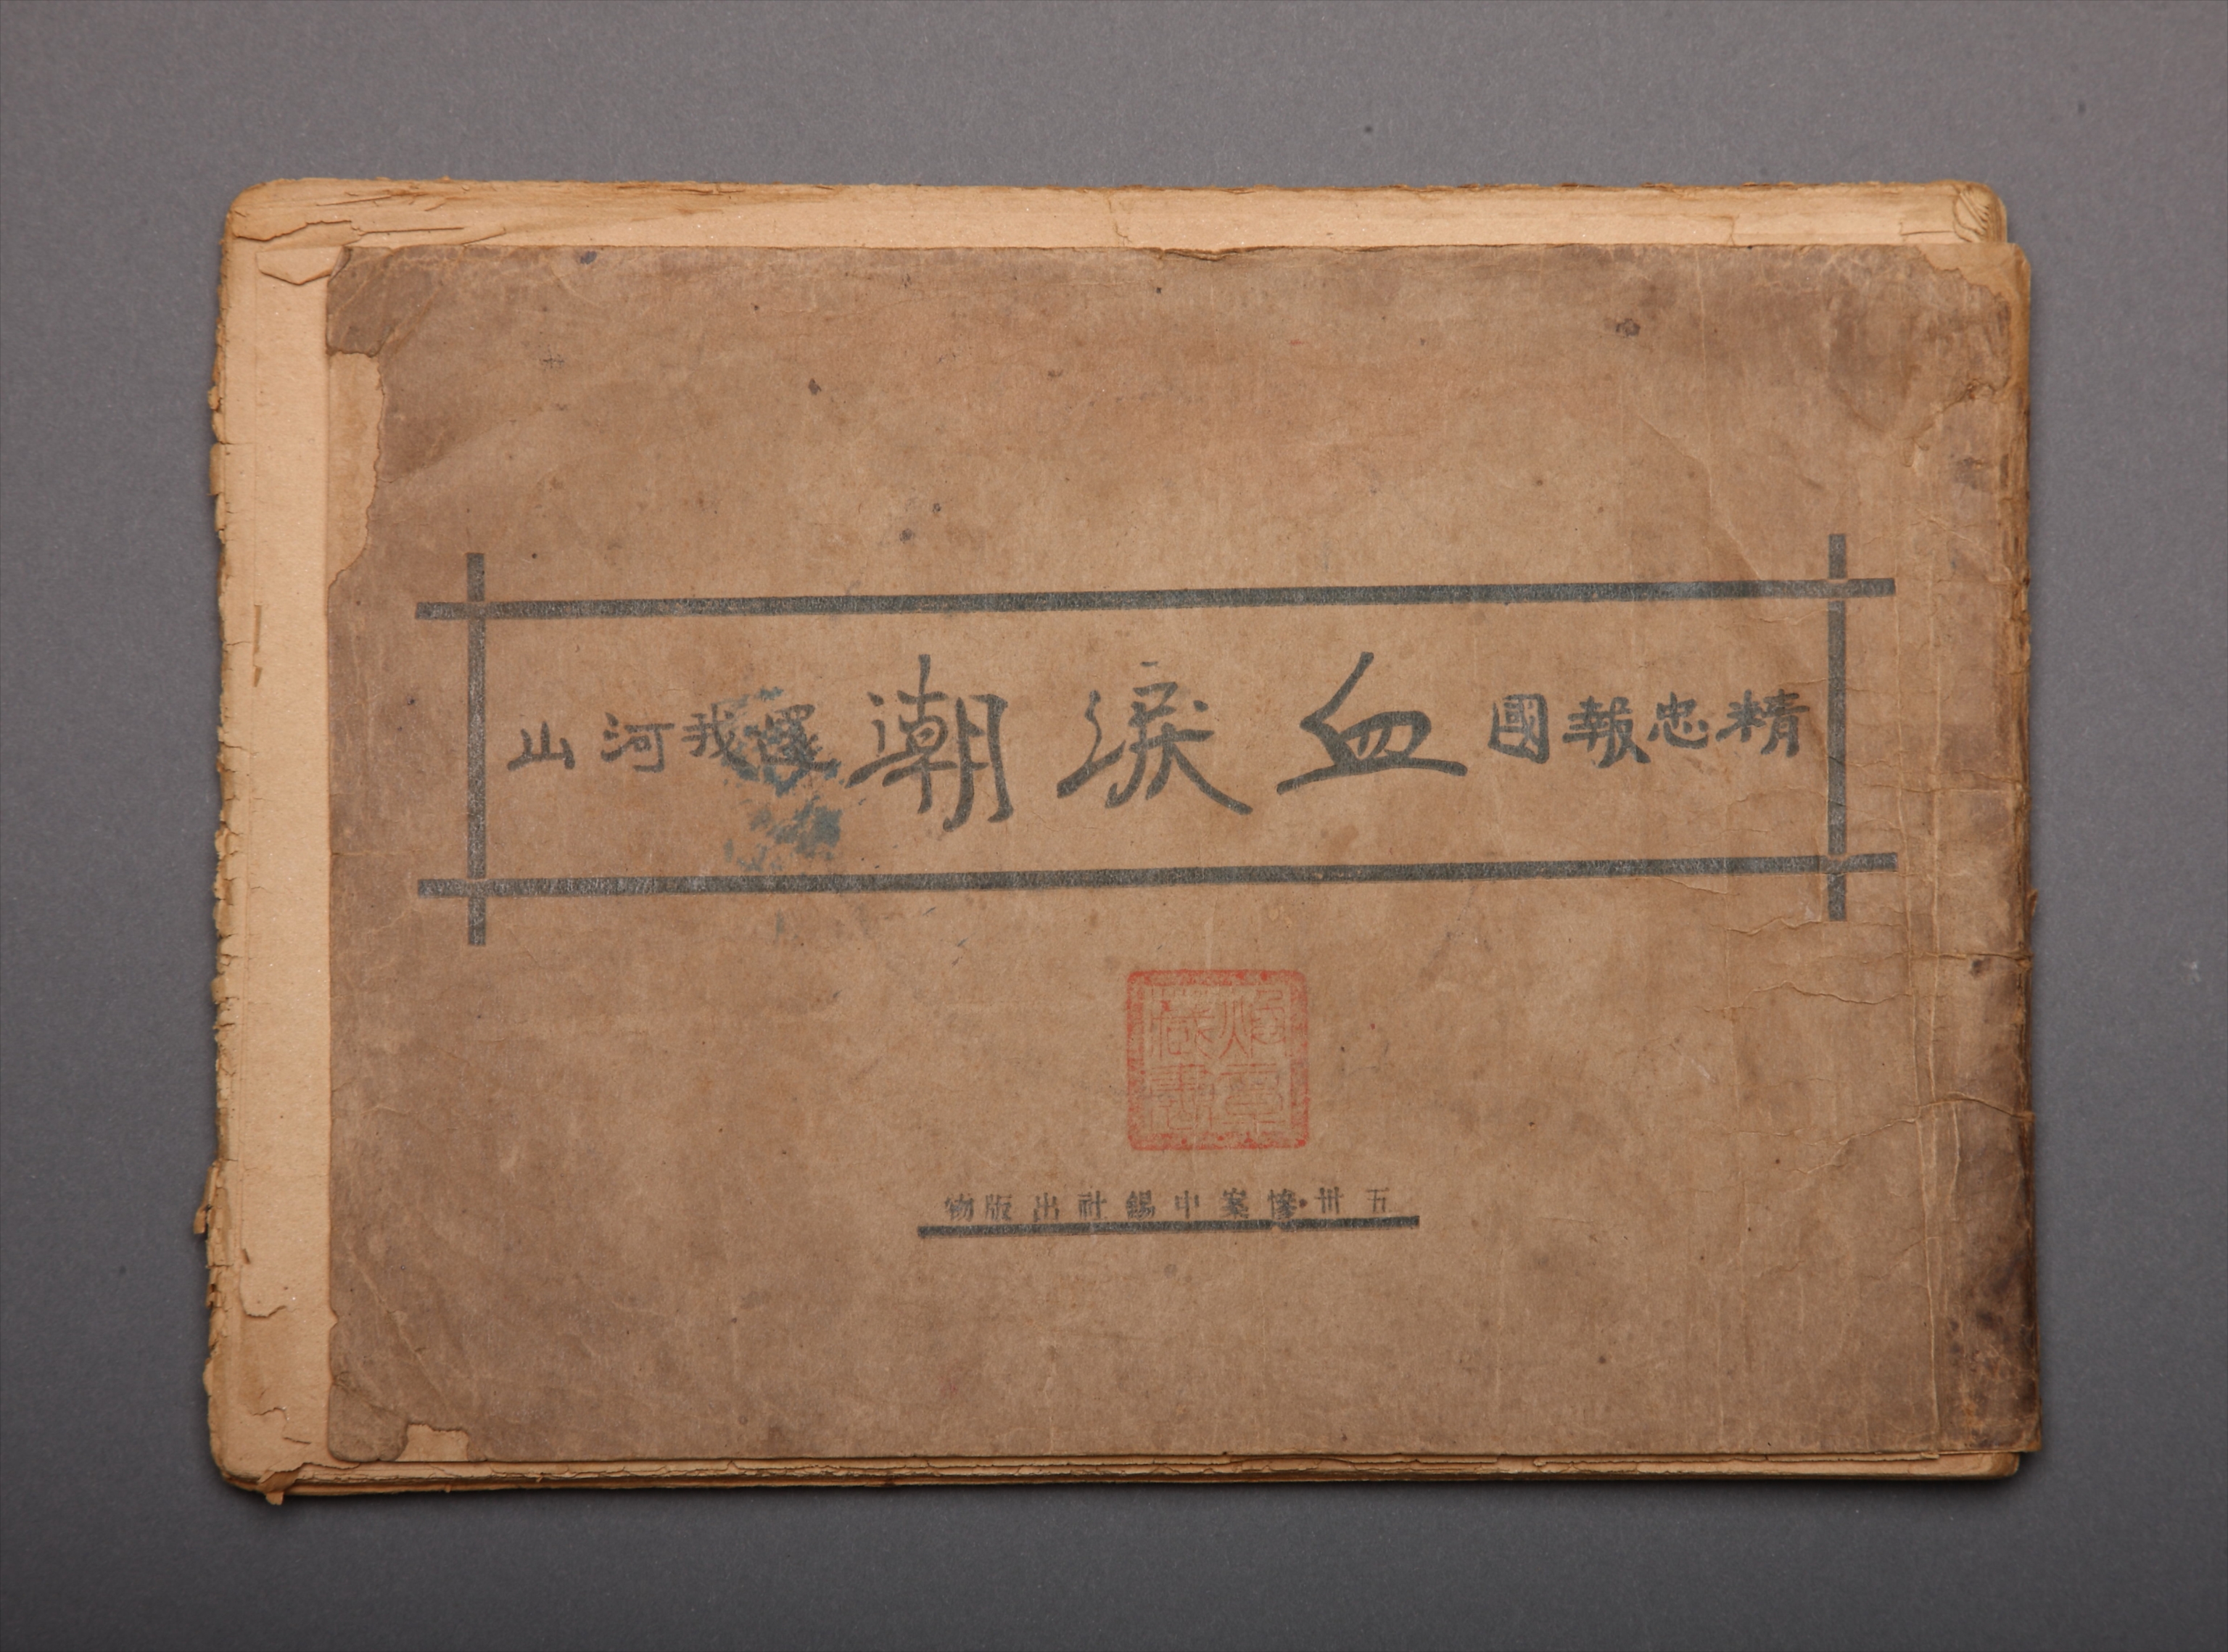 精忠報國 血淚潮 還我河山
藏書
五卅慘案中錫社出版物